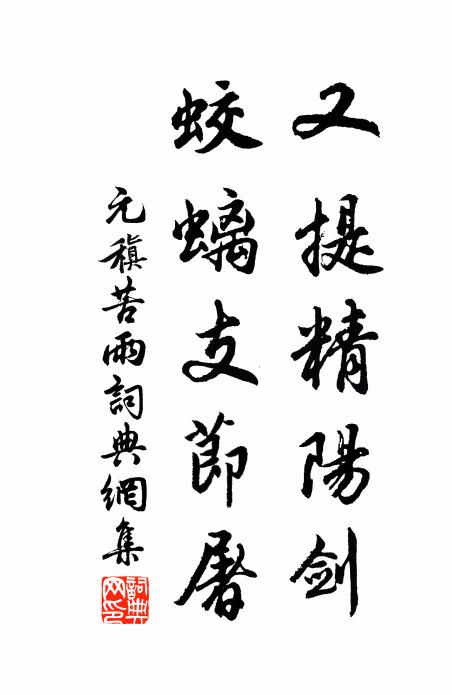 又提精陽劍
蛟螭支節屠
元稹苦雨詞典網集
詞典網印